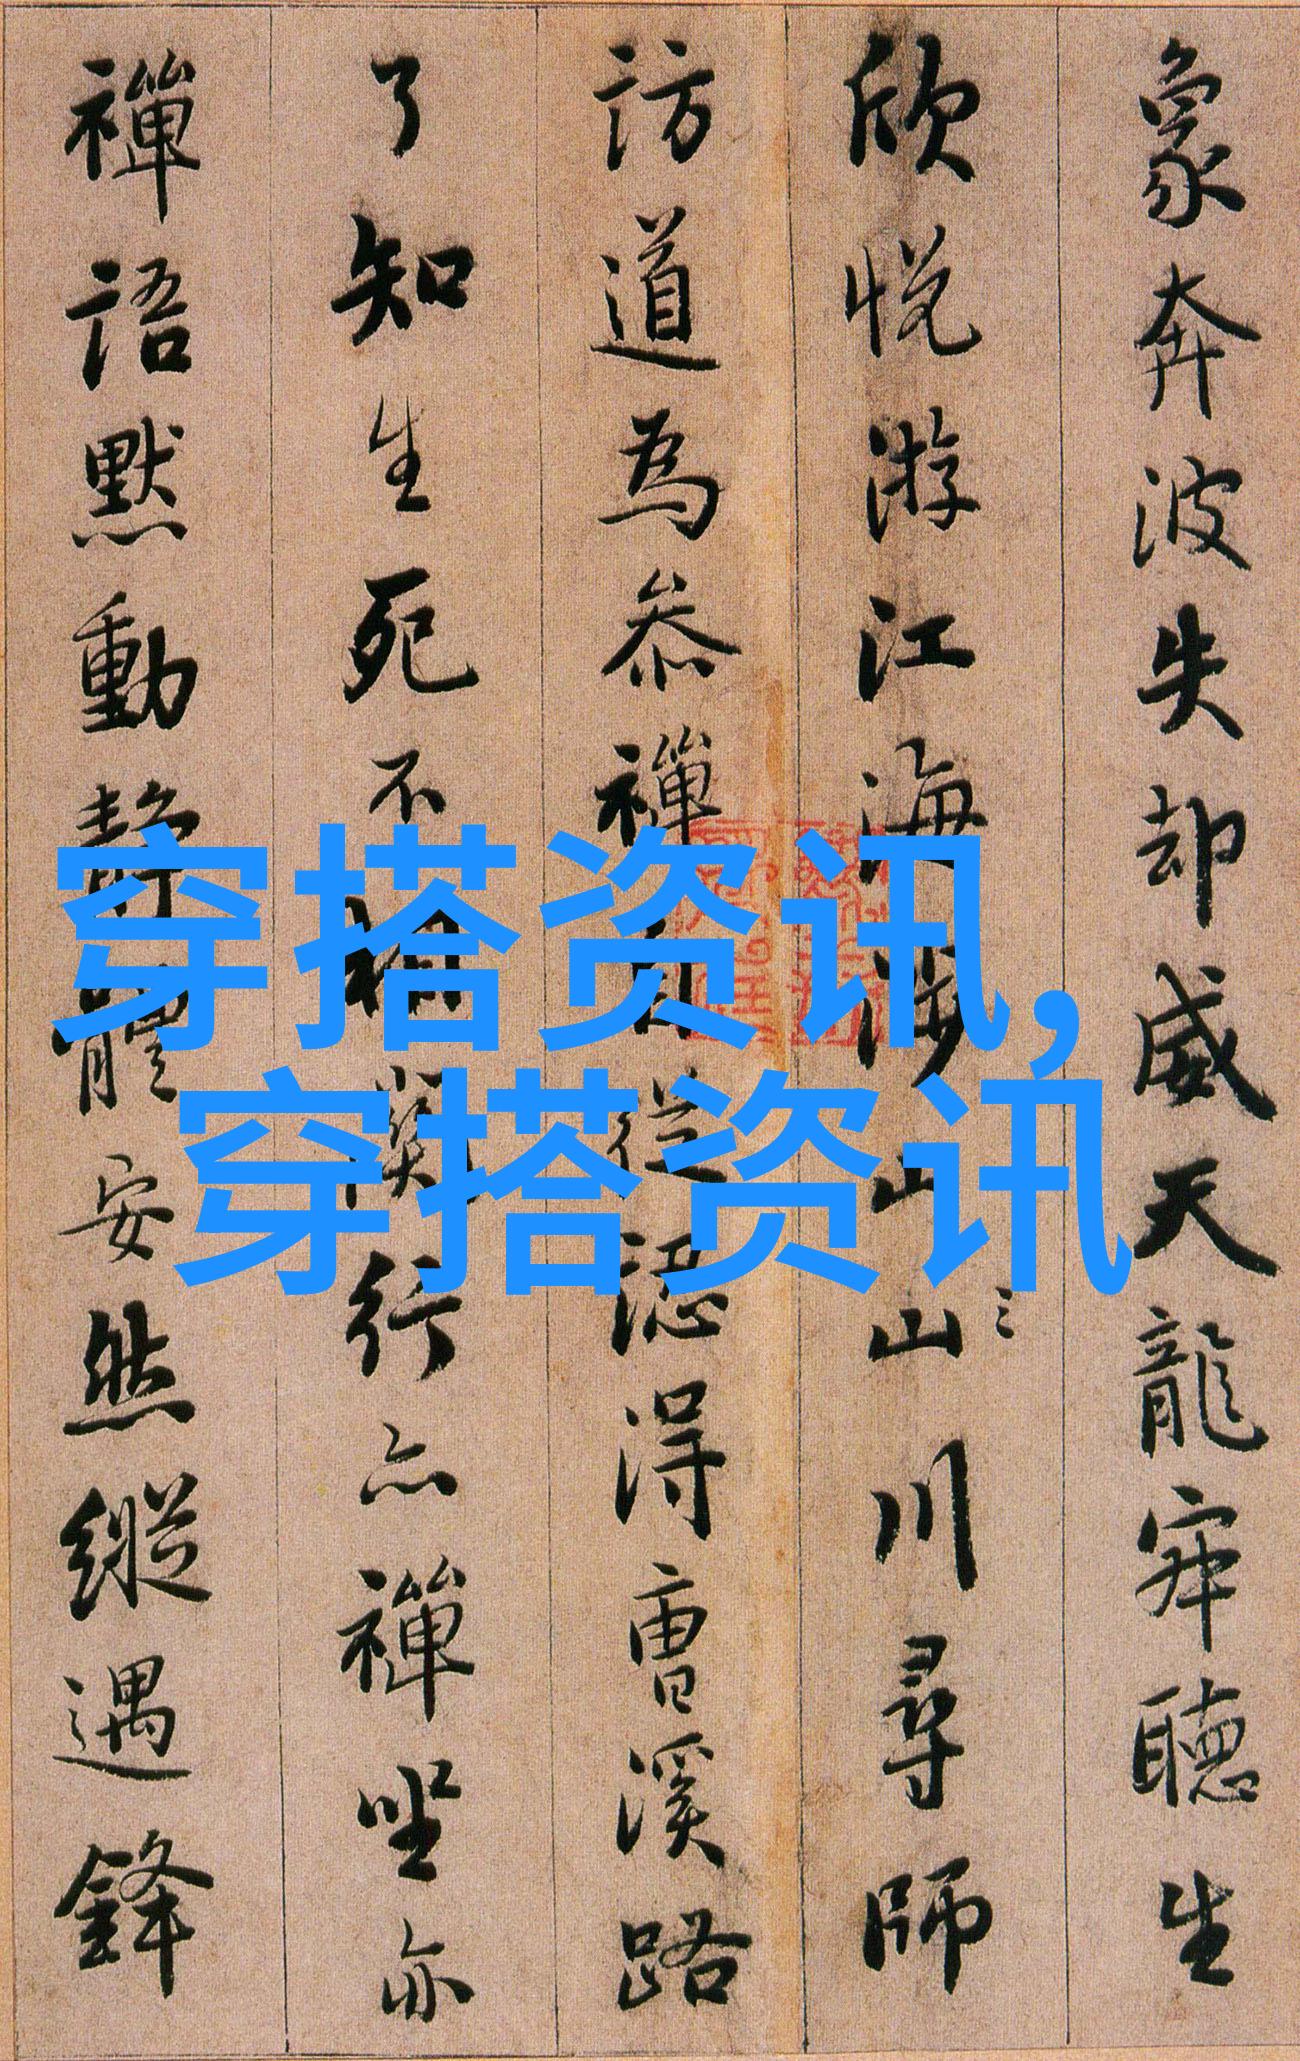 象奔波失却威天龍寂聽生
欣悦游江海涉山山川尋師
訪道為叅禪自從認得曹溪路
了知生死不相關行亦禪坐亦
禪語默動静體安然縱遇鋒
穿搭资讯,
穿搭资讯